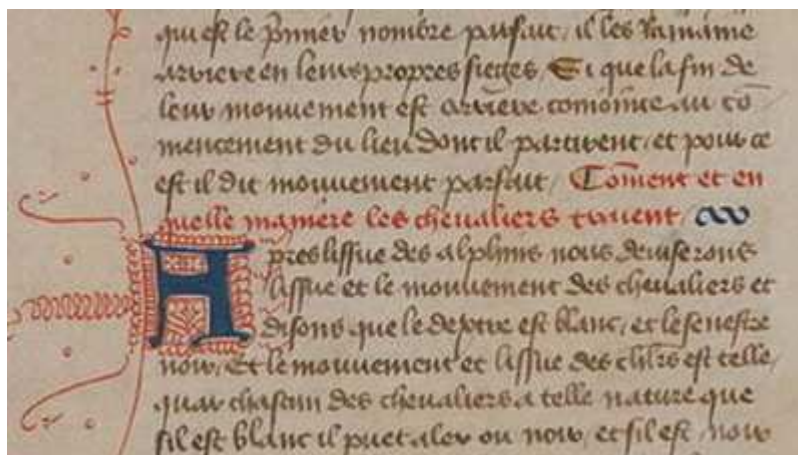 qui est le p̃mier nombre parfait, il les ramaine
arriere en leurs propres sieges, Si que la fin de
leur mouuement est arriere comointe au cõ
mencement du lieu dont il partirent, et pour ce
est il dit mouuement parfait, Com̃ent et en
quelle maniere les cheualiers truuent,
Apres lissue des alphins nous deuiserons
lissue et le mouuement des cheualiers et
disons que le deptre est blanc, et le senestre
noir, Et le mouuement et lissue des chl̃rs est telle,
quar chascun des cheualiers a telle nature que
sil est blanc il puet aler ou noir, et sil est noir